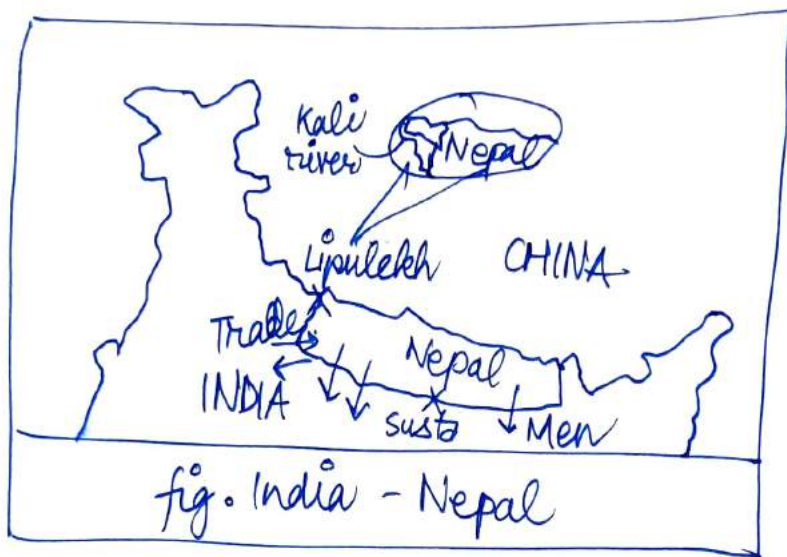 Kali
river
Nepal
Lipulekh
CHINA
Trade
Nepal
INDIA
Susta
Men
fig. India - Nepal